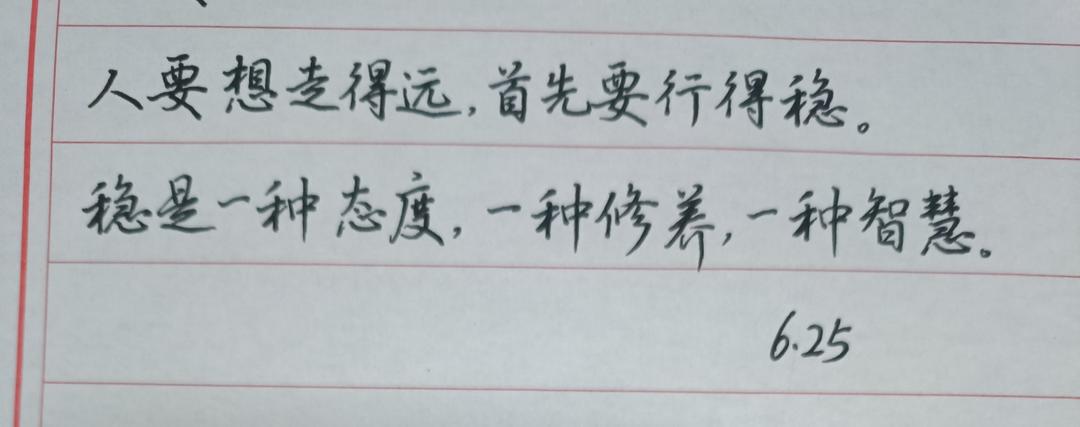 人要想走得远,首先要行得稳。
稳是一种态度,一种修养,一种智慧。
6.25